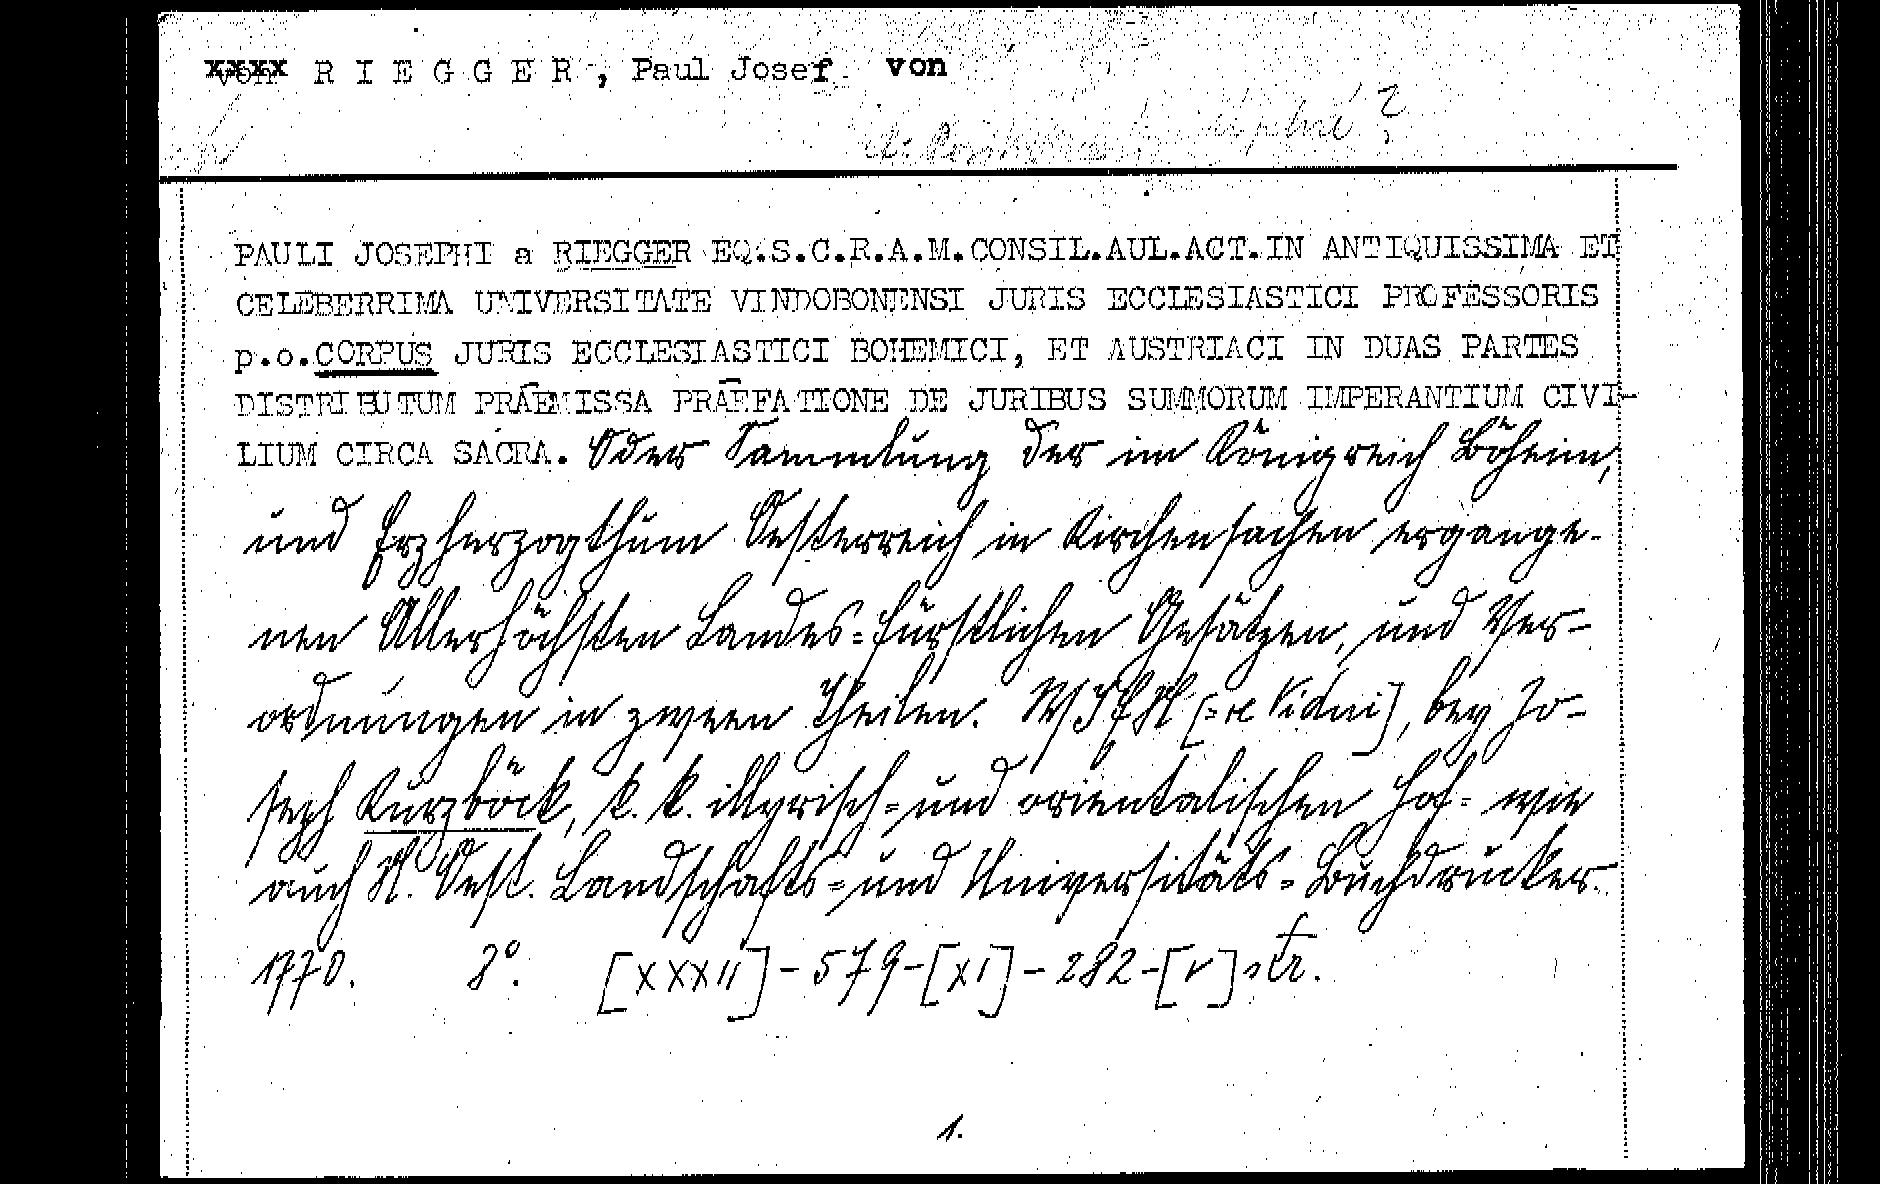 von R I E G G E R , Paul Josef von
PAULI JOSEPHI a RIEGGER EQ.S.C.R.A.M.CONSIL.AUL.ACT.IN ANTIQUISSIMA ET
CELEBERRIMA UNIVERSITATE VINDOBONENSI JURIS ECCLESIASTICI PROFESSORIS
p.o.CORPUS JURIS ECCLESIASTICI BOHEMICI, ET AUSTRIACI IN DUAS PARTES
DISTRIBUTUM PRAEMISSA PRAEFATIONE DE JURIBUS SUMMORUM IMPERANTIUM CIVI-
LIUM CIRCA SACRA. Oder Sammlung der im Königreich Böheim,
und Erzherzogthum Oesterreich in Kirchensachen ergange-
nen Allerhöchsten Landes=fürstlichen Gesätzen, und Ver-
ordnungen in zween Theilen. WIEN [=ve Vídni], bey Jo-
seph Kurzböck, k. k. illyrisch= und orientalischen Hof= wie
auch N. Oest. Landschafts= und Universitäts=Buchdrucker.
1770. 8°. [XXXII]-579-[XI]-282-[V] str.
1.